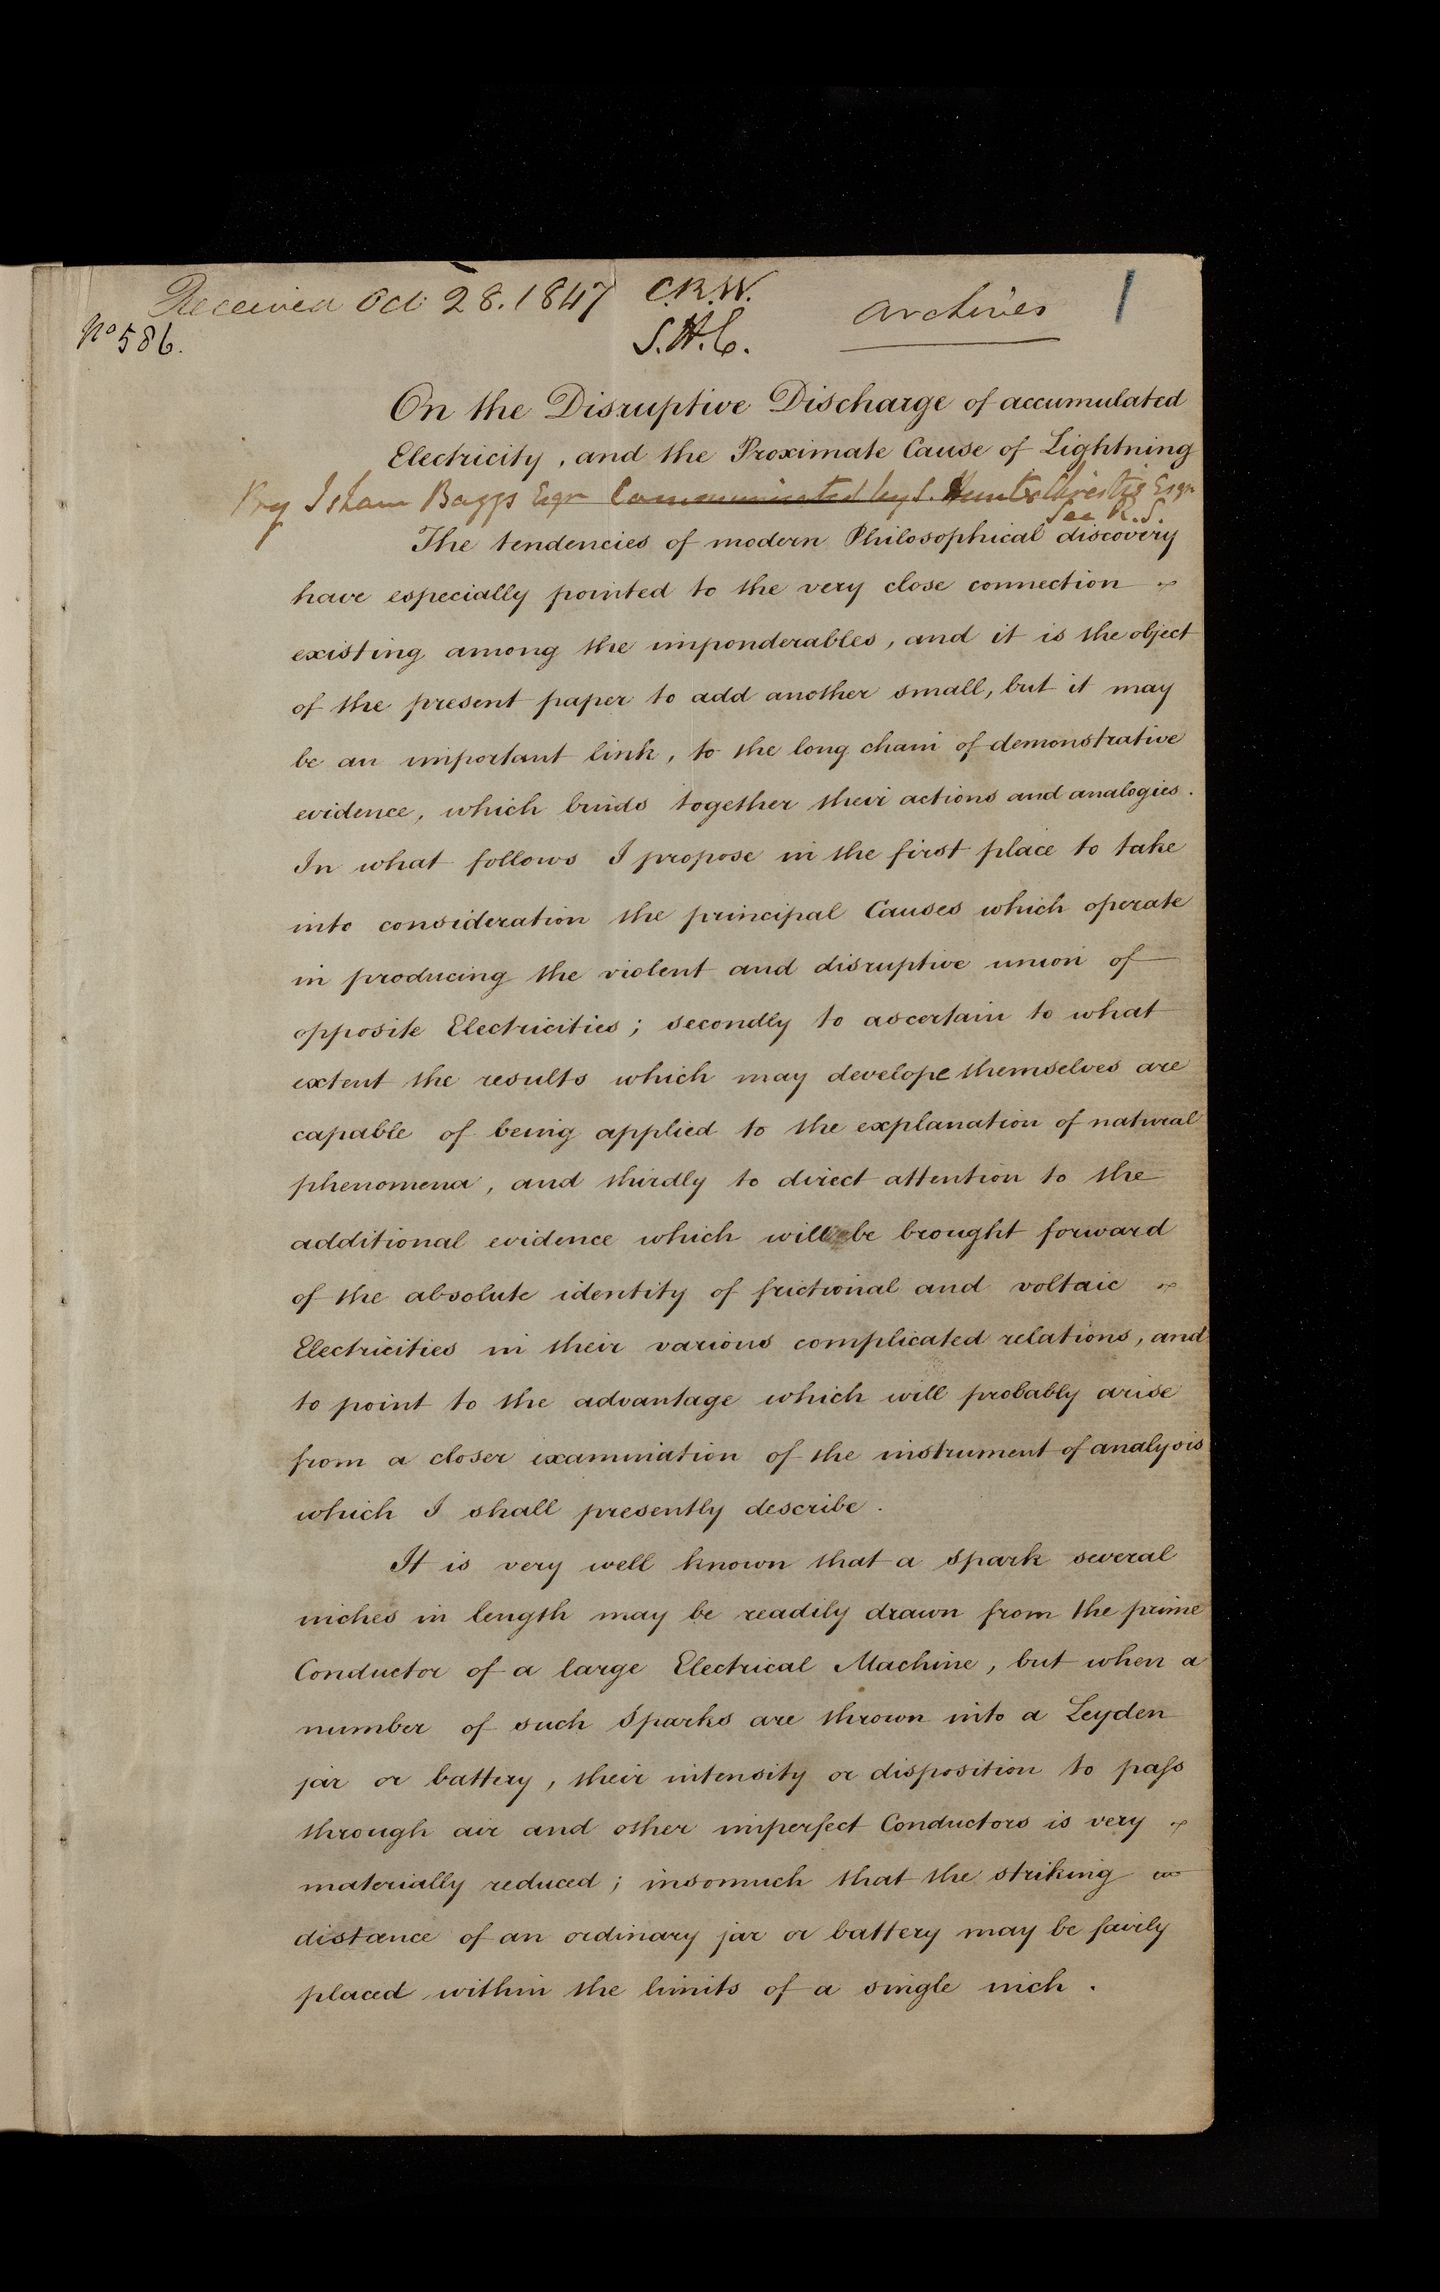 Received Oct 28. 1847 C.R.W. archives 1
No 586. S.H.C.
On the Disruptive Discharge of accumulated
Electricity, and the Proximate Cause of Lightning
By Isham Baggs Esqr Communicated by S. Hunter Christie Esqr
Sec R.S.
The tendencies of modern Philosophical discovery
have especially pointed to the very close connection
existing among the imponderables, and it is the object
of the present paper to add another small, but it may
be an important link, to the long chain of demonstrative
evidence, which binds together their actions and analogies.
In what follows I propose in the first place to take
into consideration the principal Causes which operate
in producing the violent and disruptive union of
opposite Electricities; secondly to ascertain to what
extent the results which may develope themselves are
capable of being applied to the explanation of natural
phenomena, and thirdly to direct attention to the
additional evidence which will be brought forward
of the absolute identity of frictional and voltaic
Electricities in their various complicated relations, and
to point to the advantage which will probably arise
from a closer examination of the instrument of analysis
which I shall presently describe.
It is very well known that a Spark several
inches in length may be readily drawn from the prime
Conductor of a large Electrical Machine, but when a
number of such Sparks are thrown into a Leyden
jar or battery, their intensity or disposition to pass
through air and other imperfect Conductors is very
materially reduced; insomuch that the striking
distance of an ordinary jar or battery may be fairly
placed within the limits of a single inch.